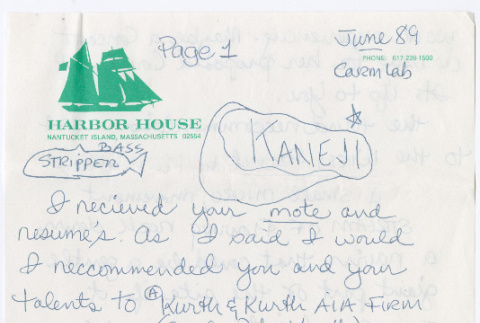 Page 1
June 89
PHONE: 617-228-1500
Carmlab
HARBOR HOUSE
NANTUCKET ISLAND, MASSACHUSETTS 02554
BASS
STRIPPER
KANEJI
I recieved your mote and
resume's. As I said I would
I reccommended you and your
talents to A Kurth & Kurth AIA FIRM